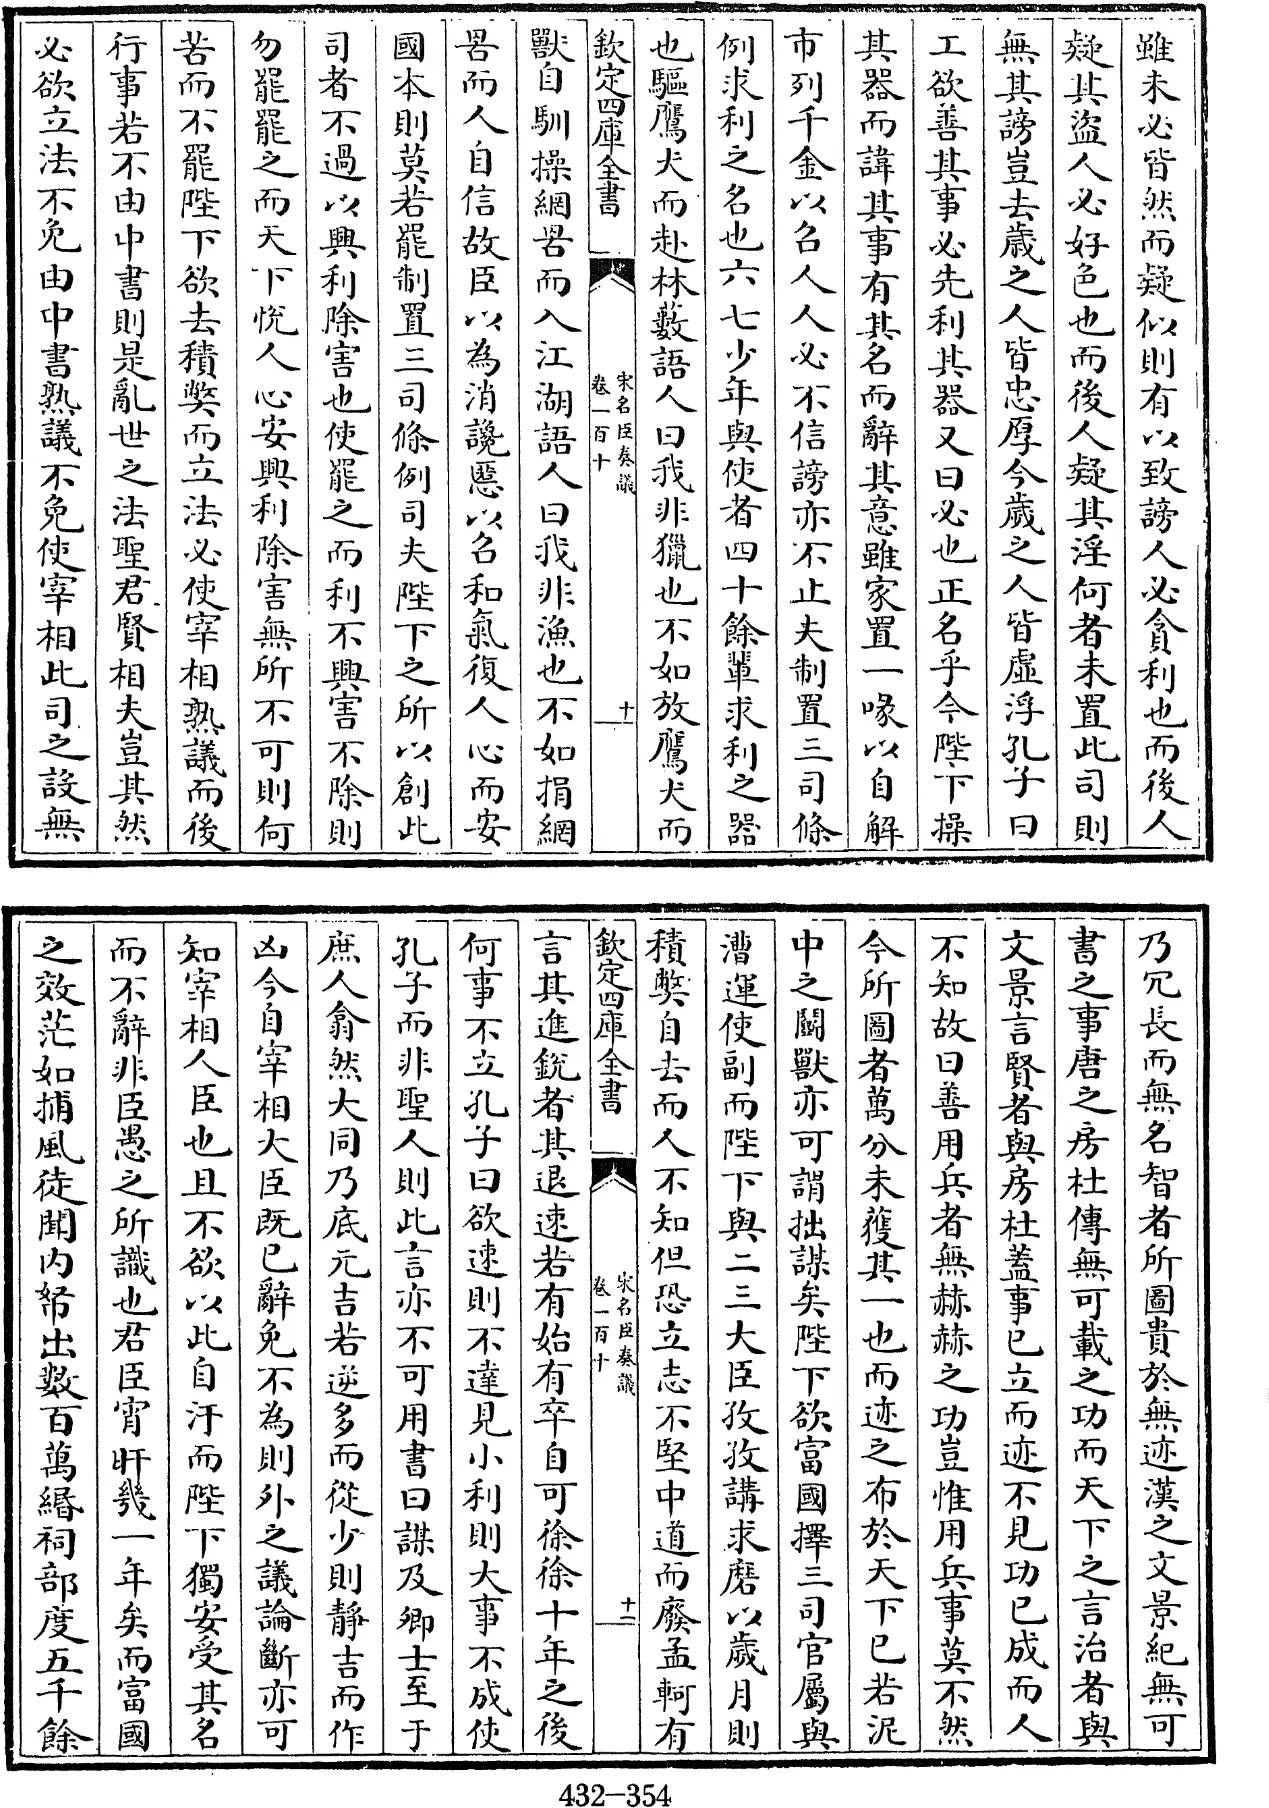 雖未必皆然而疑似則有以致謗人必貪利也而後人
疑其盜人必好色也而後人疑其淫何者未置此司則
無其謗豈去歲之人皆忠厚今歲之人皆虛浮孔子曰
工欲善其事必先利其器又曰必也正名乎今陛下操
其器而諱其事有其名而辭其意雖家置一喙以自解
市列千金以召人人必不信謗亦不止夫制置三司條
例求利之名也六七少年與使者四十餘輩求利之器
也驅鷹犬而赴林藪語人曰我非獵也不如放鷹犬而
欽定四庫全書
宋名臣奏議
卷一百十
十
獸自馴操網罟而入江湖語人曰我非漁也不如捐網
罟而人自信故臣以為消讒慝以召和氣復人心而安
國本則莫若罷制置三司條例司夫陛下之所以創此
司者不過以興利除害也使罷之而利不興害不除則
勿罷罷之而天下悅人心安興利除害無所不可則何
苦而不罷陛下欲去積弊而立法必使宰相熟議而後
行事若不由中書則是亂世之法聖君賢相夫豈其然
必欲立法不免由中書熟議不免使宰相此司之設無
乃冗長而無名智者所圖貴於無迹漢之文景紀無可
書之事唐之房杜傳無可載之功而天下之言治者與
文景言賢者與房杜蓋事已立而迹不見功已成而人
不知故曰善用兵者無赫赫之功豈惟用兵事莫不然
今所圖者萬分未獲其一也而迹之布於天下已若泥
中之鬭獸亦可謂拙謀矣陛下欲富國擇三司官屬與
漕運使副而陛下與二三大臣孜孜講求磨以歲月則
積弊自去而人不知但恐立志不堅中道而廢孟軻有
欽定四庫全書
宋名臣奏議
卷一百十
十一
言其進銳者其退速若有始有卒自可徐徐十年之後
何事不立孔子曰欲速則不達見小利則大事不成使
孔子而非聖人則此言亦不可用書曰謀及卿士至于
庶人翕然大同乃底元吉若逆多而從少則靜吉而作
凶今自宰相大臣既已辭免不為則外之議論斷亦可
知宰相人臣也且不欲以此自汙而陛下獨安受其名
而不辭非臣愚之所識也君臣宵旰幾一年矣而富國
之效茫如捕風徒聞内帑出數百萬緡祠部度五千餘
432-354